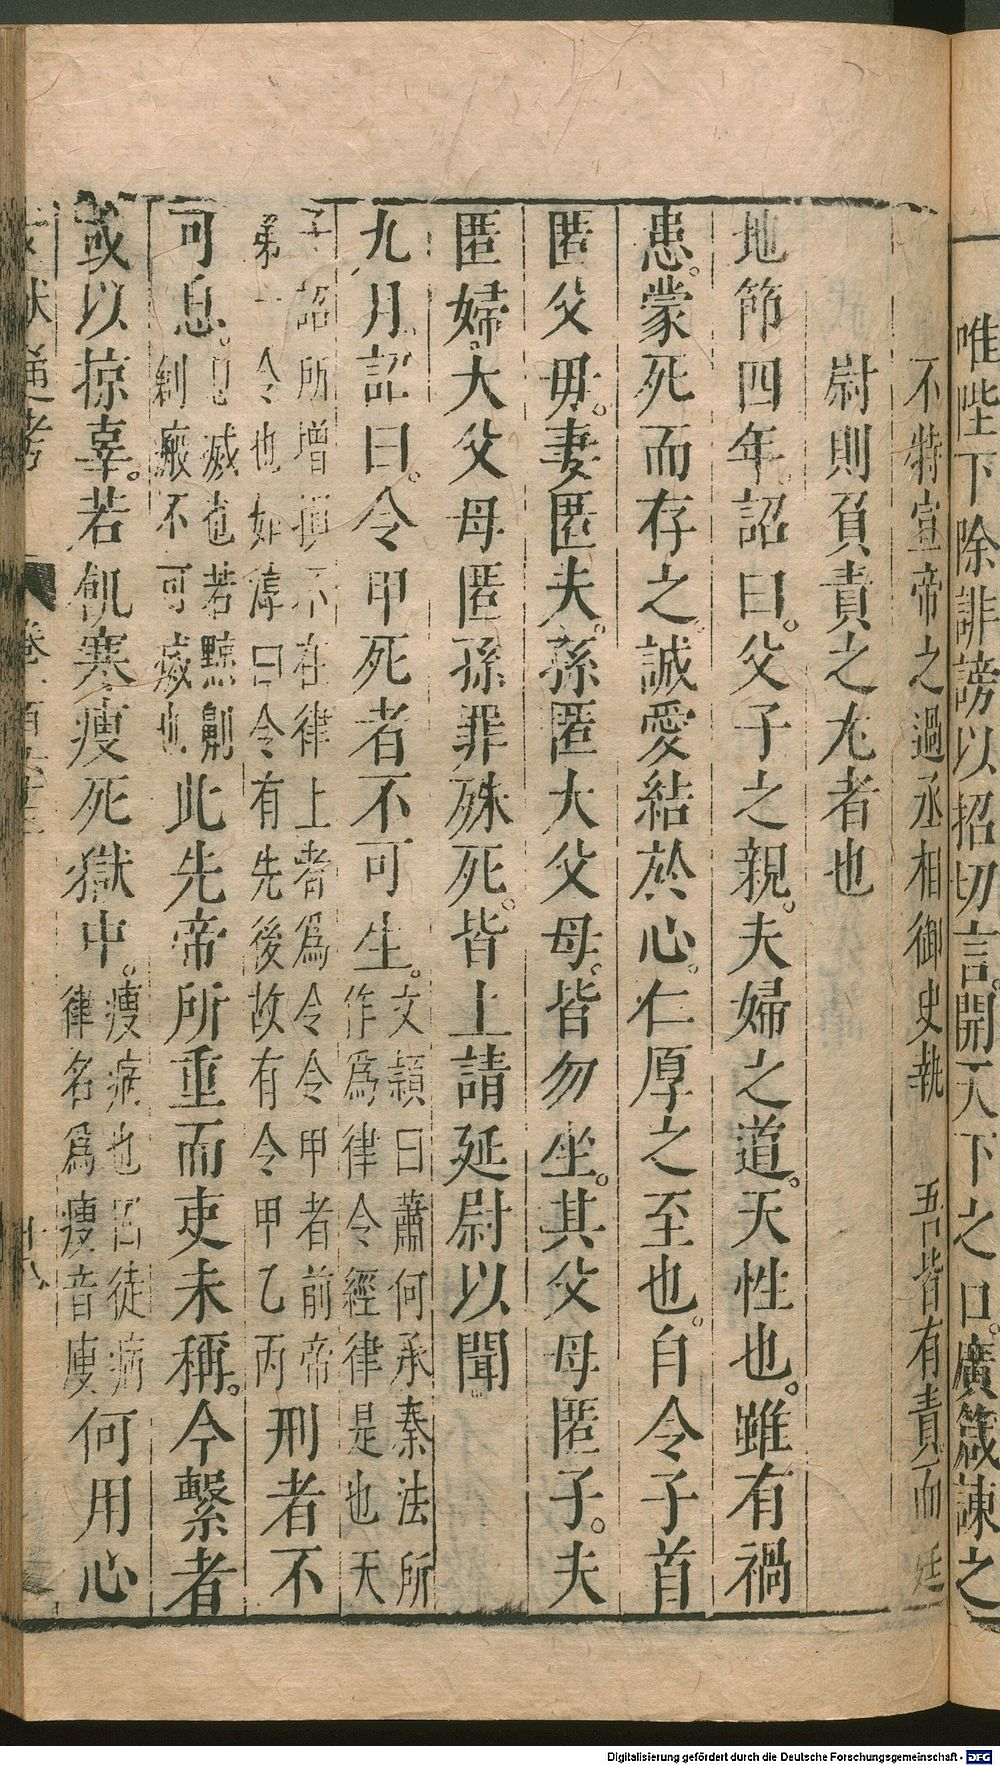 唯陛下除誹謗以招切言。開天下之口。廣箴諫之
不特宣帝之過丞相御史執 吾皆有責而廷
尉則負責之尤者也
地節四年。詔曰。父子之親。夫婦之道。天性也。雖有禍
患。蒙死而存之。誠愛結於心。仁厚之至也。自今子首
匿父母。妻匿夫。孫匿大父母。皆勿坐。其父母匿子。夫
匿婦。大父母匿孫。罪殊死。皆上請延尉以聞
九月。詔曰。令甲死者不可生。文頴曰蕭何承秦法所
作爲律令經律是也天
子詔所增損不在律上者爲令令甲者前帝
第一令也如淳曰令有先後故有令甲乙丙刑者不
可息。息滅也若黥劓
剕瘢不可滅也此先帝所重而吏未稱。今繫者
或以掠辜。若飢寒瘦死獄中。瘦病也囚徒病
律名爲瘦音庾何用心
文獻通考 卷一百六十三 十八
Digitalisierung gefördert durch die Deutsche Forschungsgemeinschaft - DFG